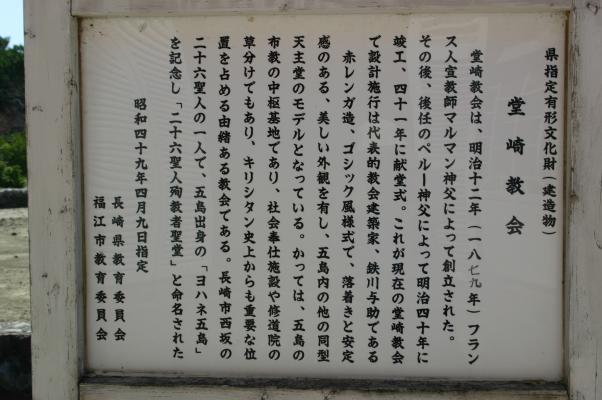 県指定有形文化財(建造物)
堂崎教会
堂崎教会は、明治十二年(一八七九年)フラン
ス人宣教師マルマン神父によって創立された。
その後、後任のペルー神父によって明治四十年に
竣工、四十一年に献堂式。これが現在の堂崎教会
で設計施行は代表的教会建築家、鉄川与助である
赤レンガ造、ゴシック風様式で、落着きと安定
感のある、美しい外観を有し、五島内の他の同型
天主堂のモデルとなっている。かっては、五島の
布教の中枢基地であり、社会奉仕施設や修道院の
草分けでもあり、キリシタン史上からも重要な位
置を占める由緒ある教会である。長崎市西坂の
二十六聖人の一人で、五島出身の「ヨハネ五島」
を記念し「二十六聖人殉教者聖堂」と命名された
昭和四十九年四月九日指定
長崎県教育委員会
福江市教育委員会